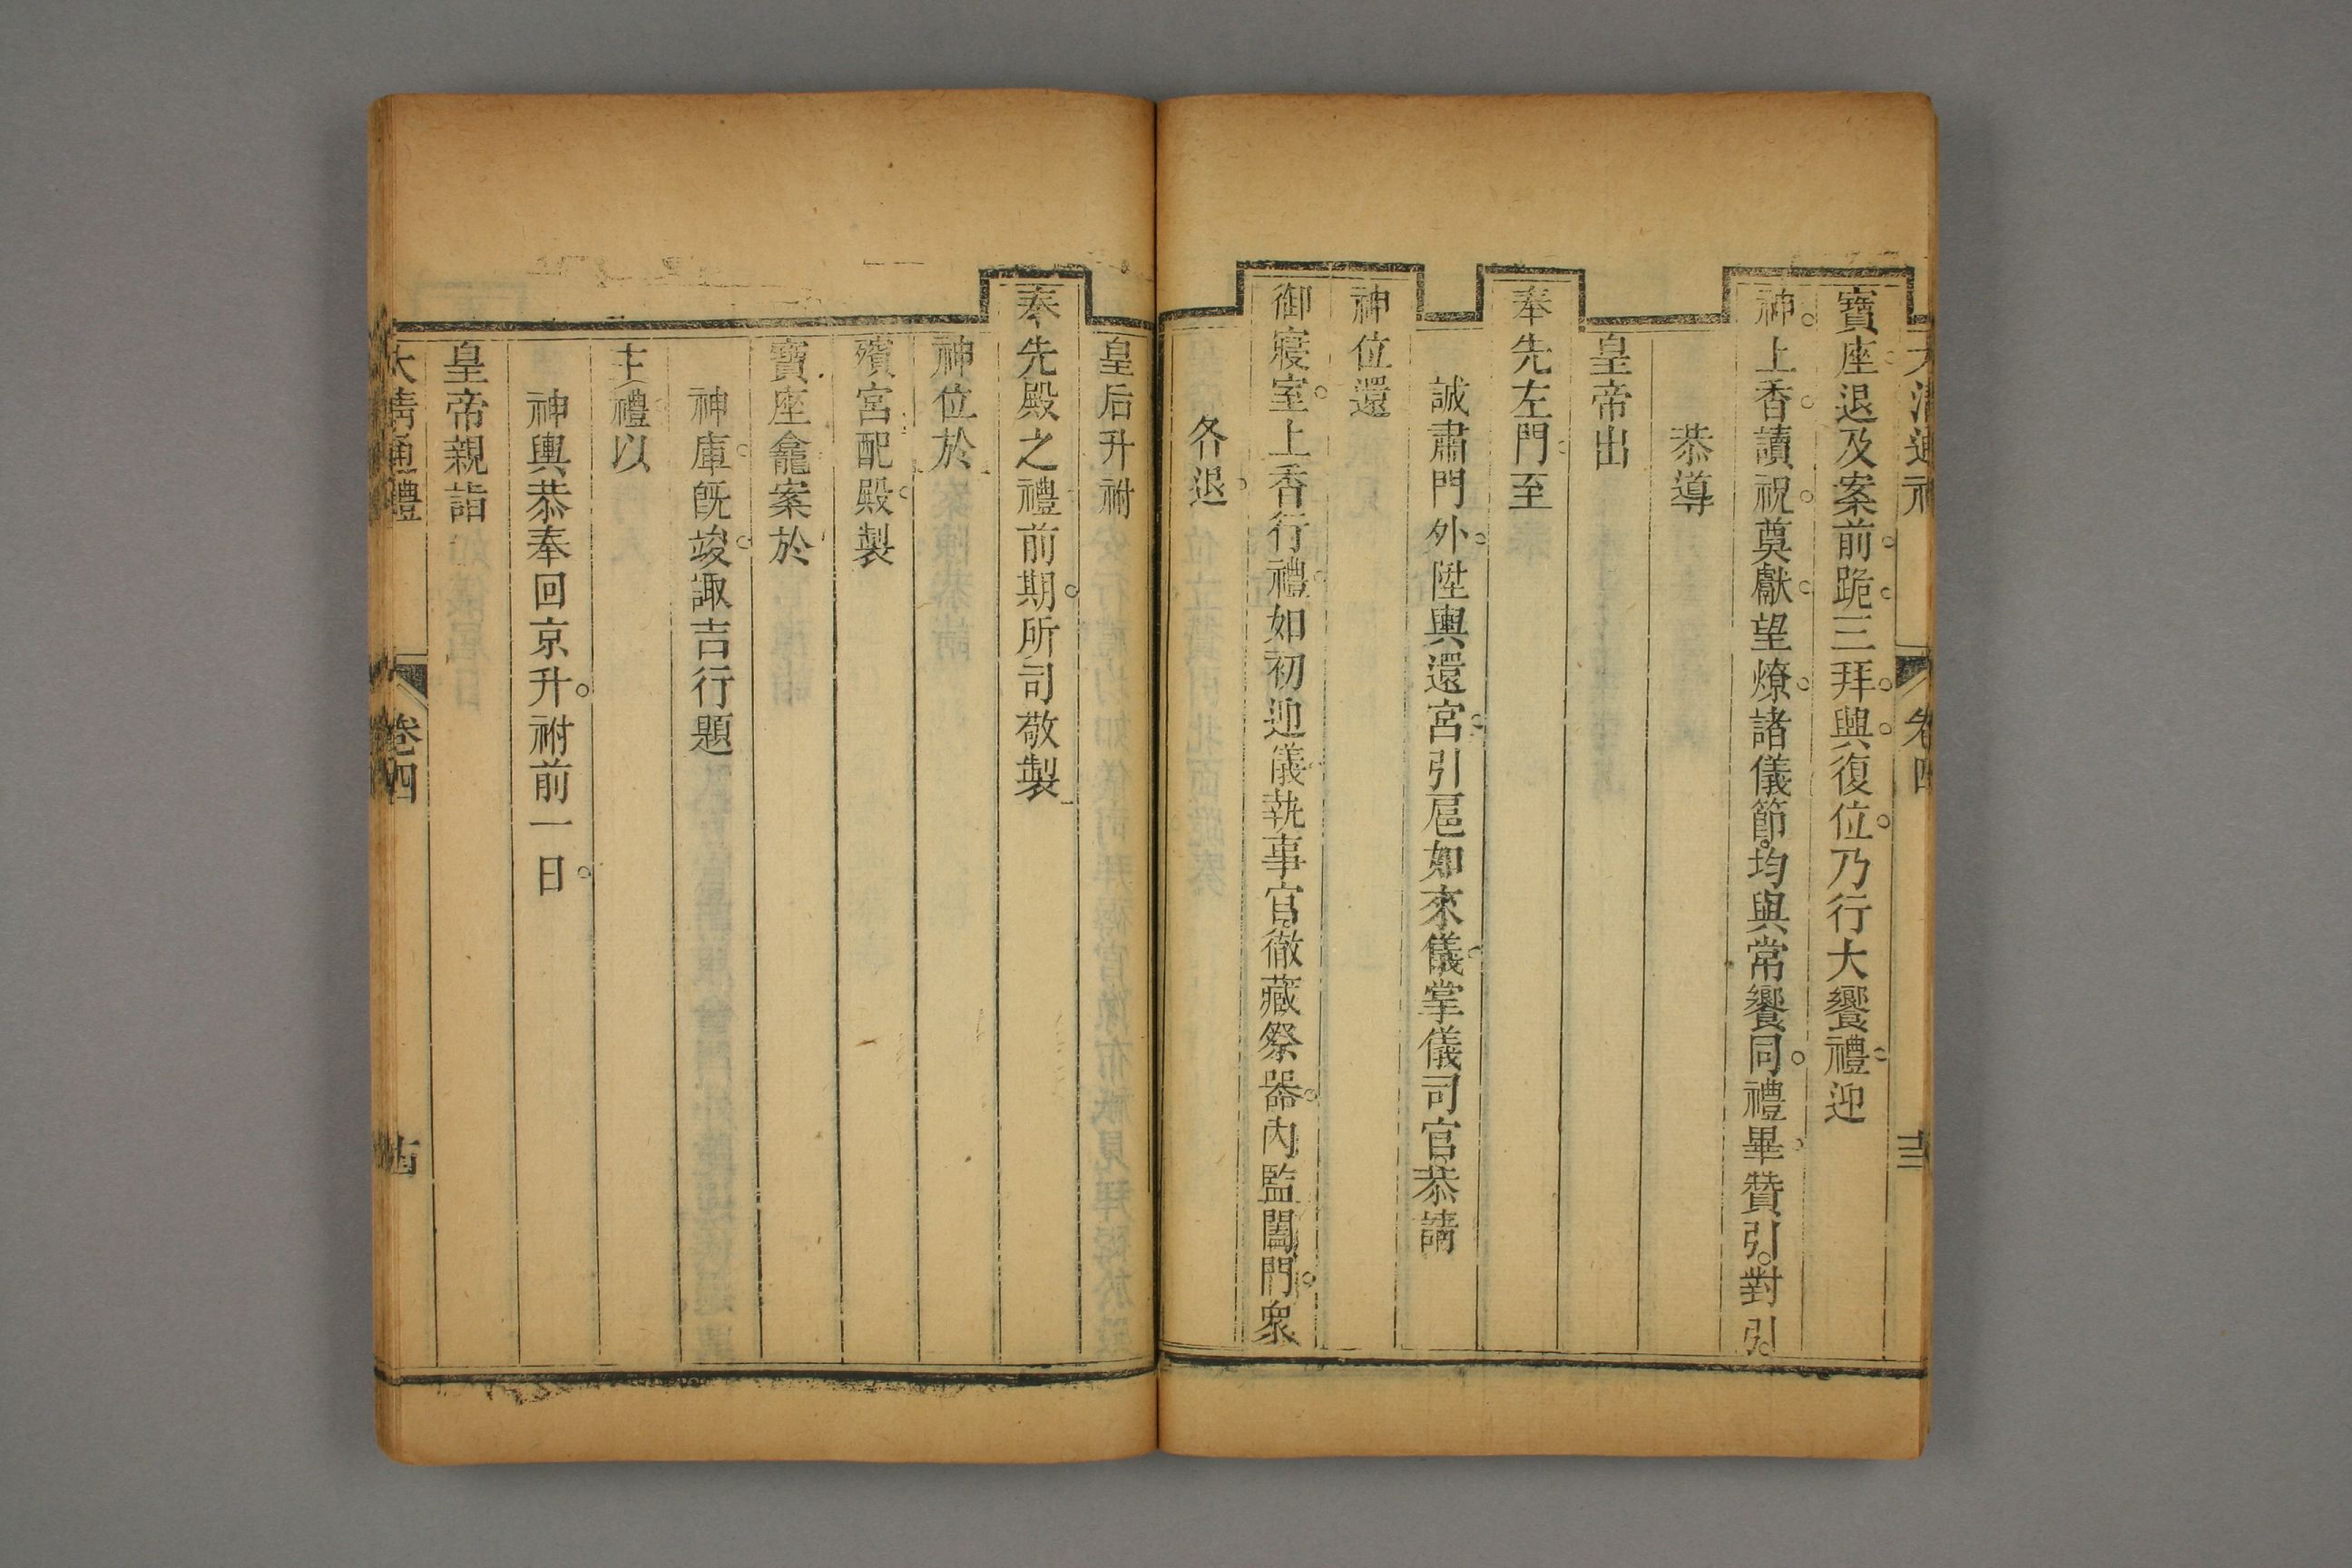 大清通禮 卷四 十三
寶座退及案前。跪。三拜。興。復位。乃行大饗禮。迎
神。上香。讀祝。奠獻。望燎。諸儀節。均與常饗同。禮畢。贊引。對引。
恭導
皇帝出
奉先左門。至
誠肅門外。陞輿還宮。引扈如來儀。掌儀司官。恭請
神位還
御寢室。上香行禮。如初迎儀。執事官。徹藏祭器。內監闔門。衆
各退。
皇后升祔
奉先殿之禮。前期。所司敬製
神位於
殯宮配殿。製
寶座龕案於
神庫。旣竣。諏吉行題
主禮。以
神輿恭奉回京升。祔前一日。
皇帝親詣
大清通禮 卷四 十四